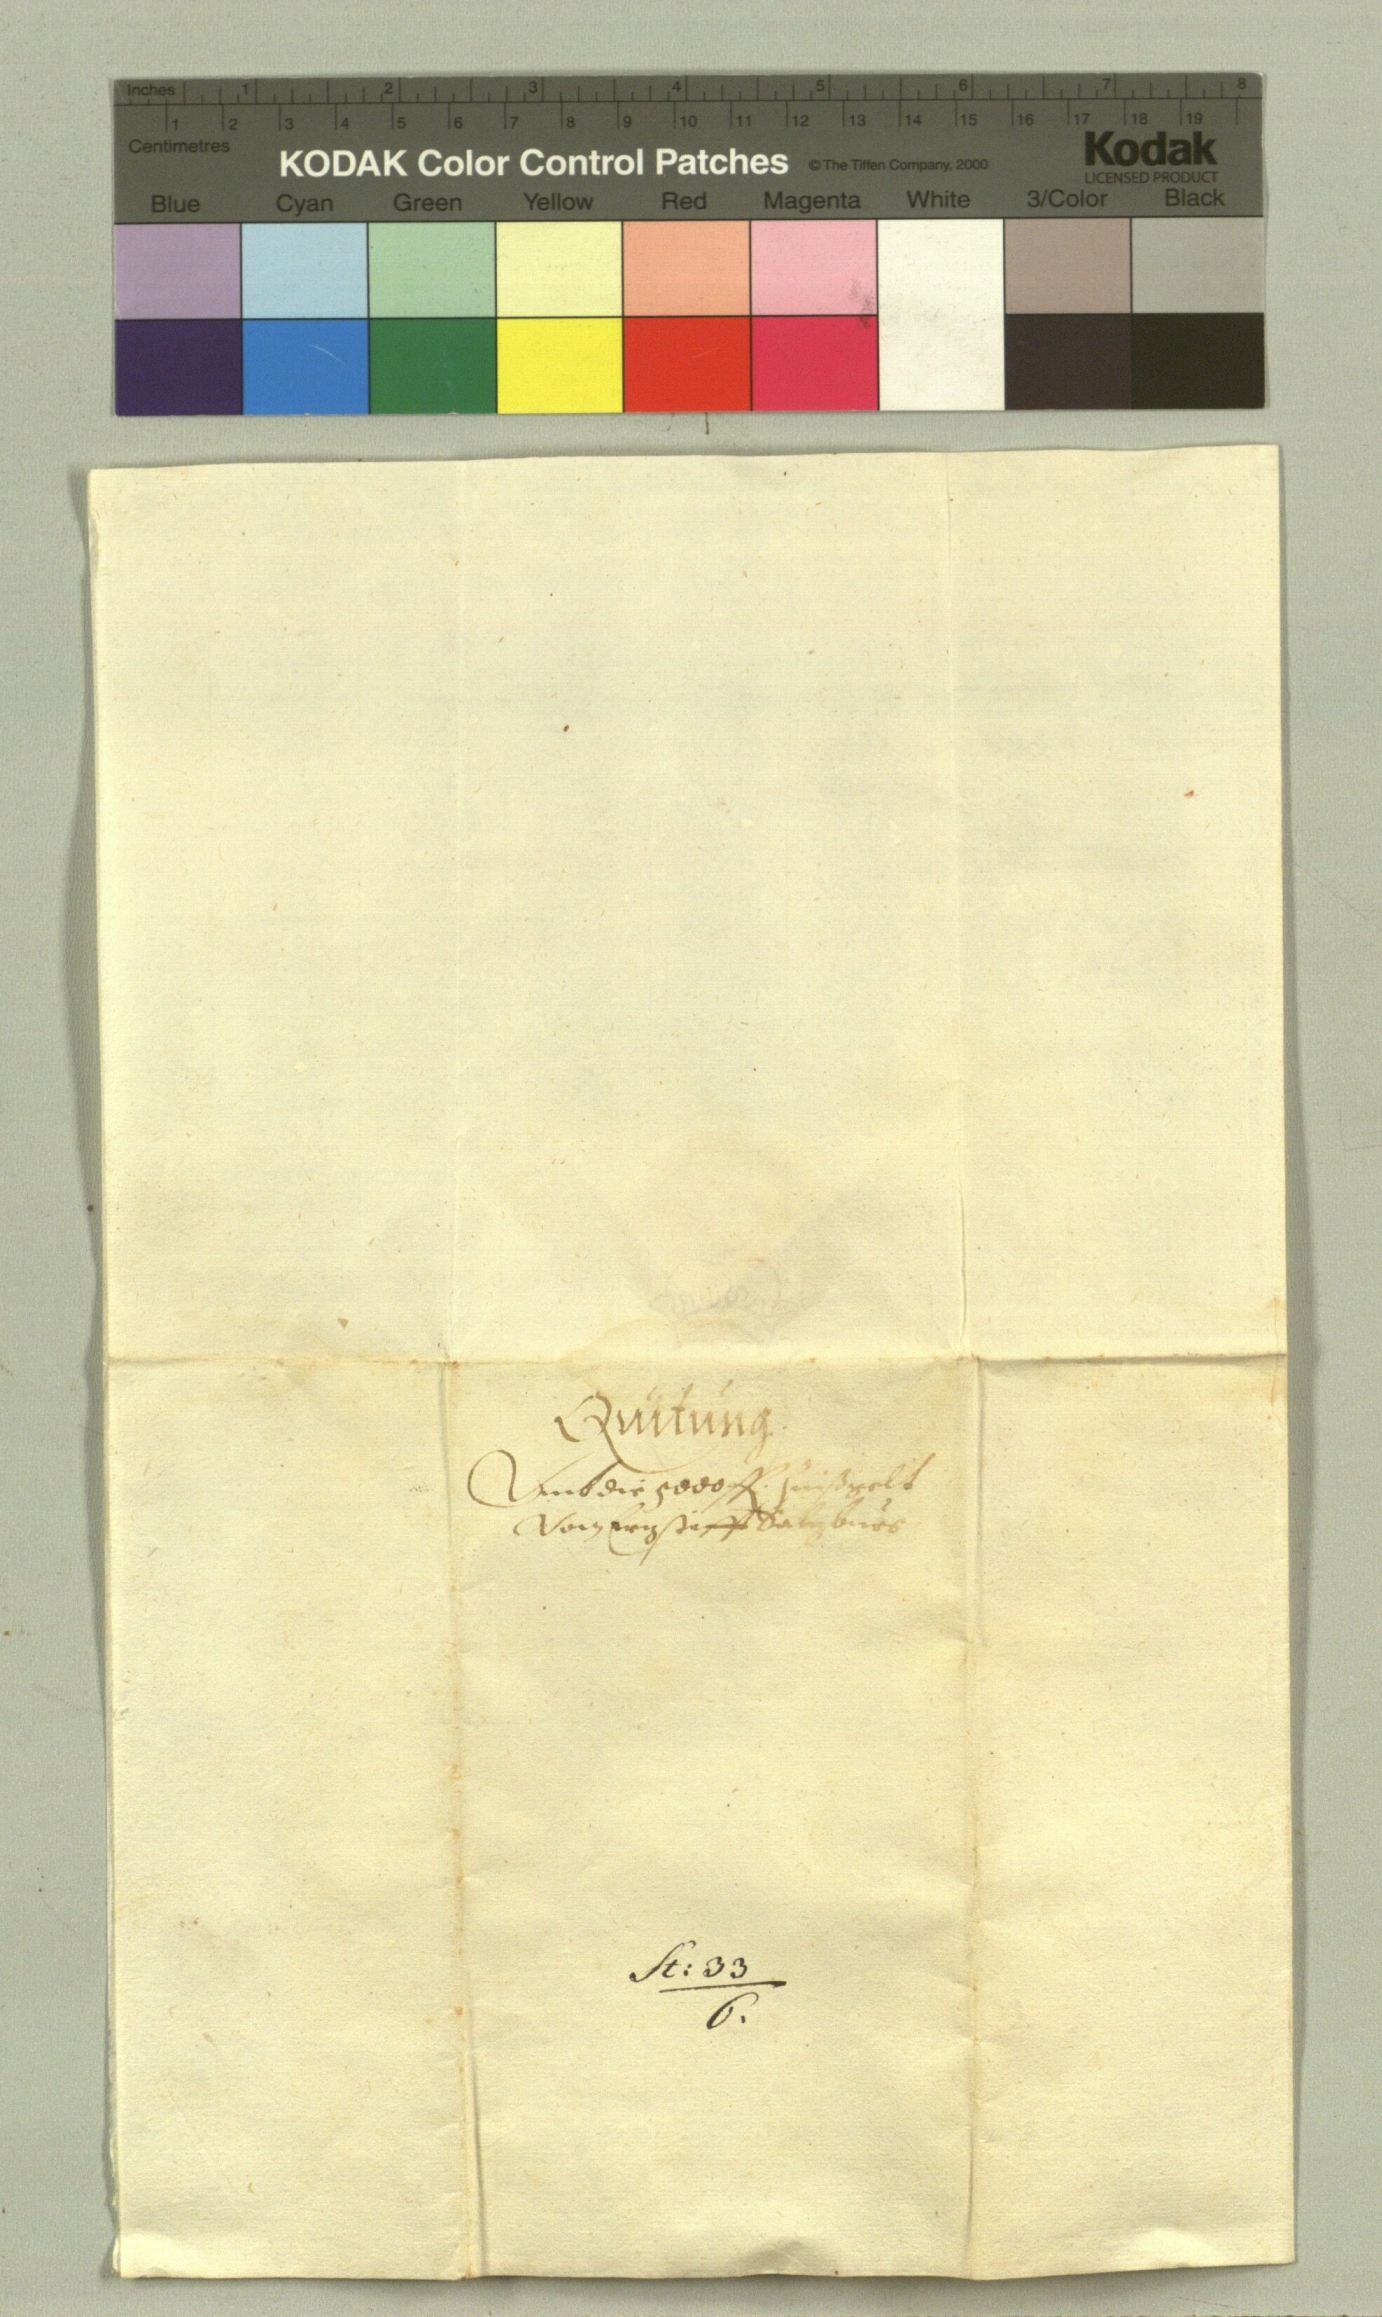 Inches 1 2 3 4 5 6 7 8
1 2 3 4 5 6 7 8 9 10 11 12 13 14 15 16 17 18 19
Centimetres
KODAK Color Control Patches © The Tiffen Company, 2000 Kodak
LICENSED PRODUCT
Blue Cyan Green Yellow Red Magenta White 3/Color Black
Quitung
Umb die 5000 fl. Zinßgelt
Vom Erzstifft Salzburg
St: 33
6.